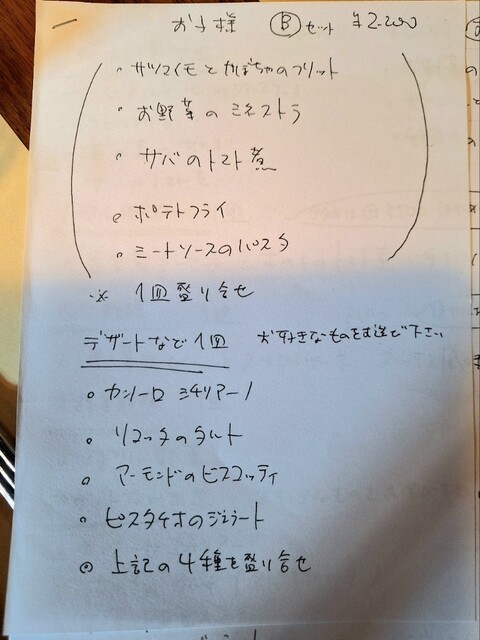 お子様 Ⓑセット ¥2.200
・サツマイモとかぼちゃのフリット
・お野菜のミネストラ
・サバのトマト煮
・ポテトフライ
・ミートソースのパスタ
※ 1皿盛り合せ
デザートなど1皿 お好きなものを選で下さい
・カンノーロ シチリアーノ
・リコッタのタルト
・アーモンドのビスコッティ
・ピスタチオのジェラート
◎ 上記の4種を盛り合せ